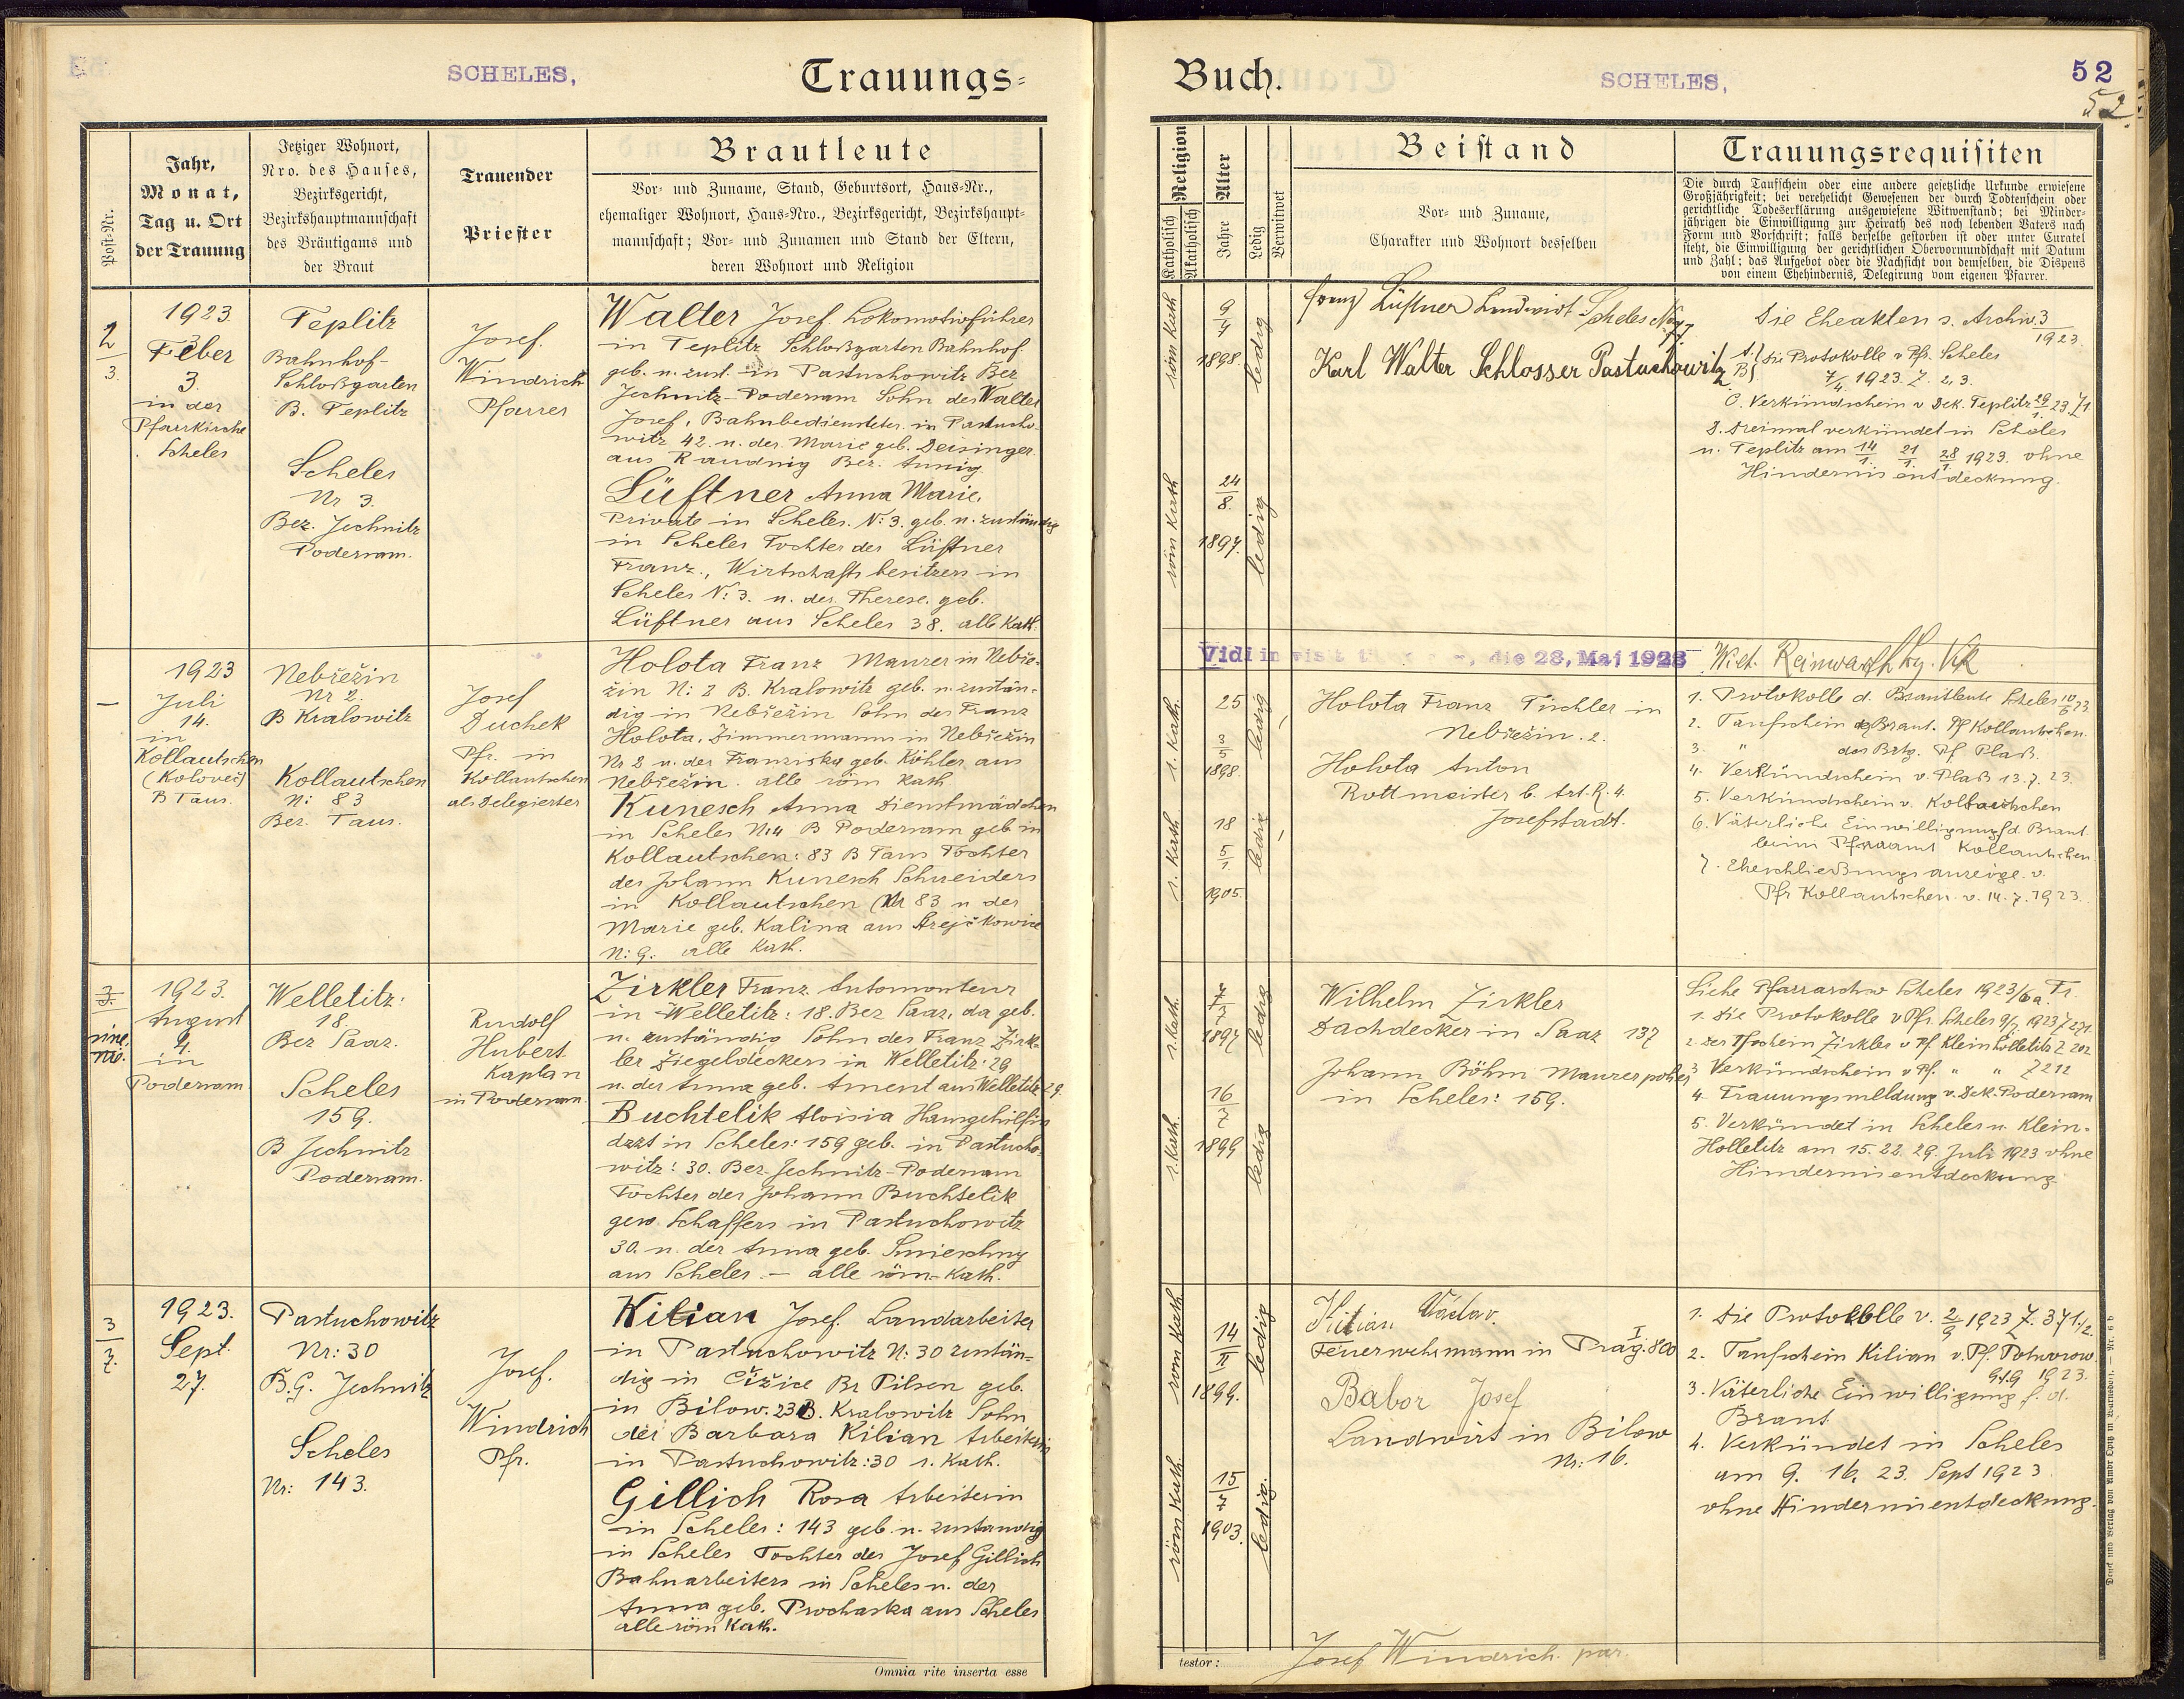 SCHELES,
Trauungs=
Post-Nr.
Jahr,
Monat,
Tag u. Ort
der Trauung
Jetziger Wohnort,
Nro. des Hauses,
Bezirksgericht,
Bezirkshauptmannschaft
des Bräutigams und
der Braut
Trauender
Priester
Brautleute
Vor- und Zuname, Stand, Geburtsort, Haus-Nr.,
ehemaliger Wohnort, Haus-Nro., Bezirksgericht, Bezirkshaupt-
mannschaft; Vor- und Zunamen und Stand der Eltern,
deren Wohnort und Religion
2
3.
1923
Feber
3.
in der
Pfarrkirche
Scheles
Teplitz
Bahnhof-
Schloßgarten
B. Teplitz
Scheles
Nr 3.
Bez. Jechnitz
Podersam.
Josef
Windrich
Pfarrer
Walter Josef Lokomotivführer
in Teplitz Schloßgarten Bahnhof
geb. u. zust. in Pastuchowitz Bez
Jechnitz-Podersam Sohn des Walter
Josef, Bahnbediensteter in Pastucho-
witz 42. u. der Marie geb. Deisinger
aus Raudnig Bez.
Lüftner Anna Marie,
Private in Scheles. N: 3. geb. u. zuständig
in Scheles Tochter des Lüftner
Franz, Wirtschaftsbesitzers in
Scheles N: 3. u. der Therese geb.
Lüftner aus Scheles 38. alle Kath.
–
1923
Juli
14.
in
Kollautschen
(Koloveč)
B Taus.
Nebřežin
Nr 2.
B Kralowitz
Kollautschen
N: 83
Bez. Taus.
Josef
Duchek
Pfr. in
Kollautschen
als Delegierter
Holota Franz Maurer in Nebře-
žin N: 2 B. Kralowitz geb. u. zustän-
dig in Nebřežin Sohn des Franz
Holota, Zimmermann in Nebřežin
Nr 2 u. der Franziska geb. Köhler aus
Nebřežin. alle röm kath
Kunesch Anna Dienstmädchen
in Scheles N:4 B Podersam geb in
Kollautschen: 83 B Taus Tochter
des Johann Kunesch Schneiders
in Kollautschen Nr 83 u der
Marie geb. Kalina aus
N: 9. alle Kath.
3
sine
nro.
1923.
August
4.
in
Podersam
Welletitz:
18.
Bez Saaz.
Scheles
159.
B Jechnitz
Podersam.
Rudolf
Hubert
Kaplan
in Podersam.
Zirkler Franz Automonteur
in Welletitz: 18. Bez Saaz, da geb.
u. zuständig Sohn des Franz Zirk-
ler Ziegeldeckers in Welletitz: 29
u. der Anna geb. Ament aus Welletitz 29.
Buchtelik Aloisia Hausgehilfin
dzt in Scheles: 159 geb. in Pastucho-
witz: 30. Bez. Jechnitz-Podersam
Tochter des Johann Buchtelik
gew. Schaffers in Pastuchowitz
30. u. der Anna geb. Smieschny
aus Scheles. – alle röm.-Kath.
3
7.
1923.
Sept.
27.
Pastuchowitz
Nr: 30
B.G. Jechnitz
Scheles
Nr: 143.
Josef
Windrich
Pfr.
Kilian Josef Landarbeiter
in Pastuchowitz N: 30 zustän-
dig in Čižice Bz Pilsen geb.
in Bilow. 23 B. Kralowitz Sohn
der Barbara Kilian Arbeiterin
in Pastuchowitz: 30 r. Kath.
Gillich Rosa Arbeiterin
in Scheles: 143 geb. u. zuständig
in Scheles Tochter des Josef Gillich
Bahnarbeiters in Scheles u. der
Anna geb. Prochaska aus Scheles
alle röm Kath.
Omnia rite inserta esse
Buch.
SCHELES,
52
52.
Religion
Katholisch
Akatholisch
Alter
Jahre
Ledig
Verwitwet
Beistand
Vor- und Zuname,
Charakter und Wohnort desselben
Trauungsrequisiten
Die durch Taufschein oder eine andere gesetzliche Urkunde erwiesene
Großjährigkeit; bei verehelicht Gewesenen der durch Todtenschein oder
gerichtliche Todeserklärung ausgewiesene Witwenstand; bei Minder-
jährigen die Einwilligung zur Heirath des noch lebenden Vaters nach
Form und Vorschrift; falls derselbe gestorben ist oder unter Curatel
steht, die Einwilligung der gerichtlichen Obervormundschaft mit Datum
und Zahl; das Aufgebot oder die Nachsicht von demselben, die Dispens
von einem Ehehindernis, Delegirung vom eigenen Pfarrer.
röm kath
9
4
1898
ledig
röm kath
24
8.
1897.
ledig
Franz Lüftner Landwirt Scheles
Karl Walter Schlosser Pastuchowitz
Die Eheakten s. Archiv 3
1923.
A. B. die Protokolle v Pfr. Scheles
7/4. 1923. Z. 2, 3.
C. Verkündschein v Dek. Teplitz 29/1. 23 Z 1
D. dreimal verkündet in Scheles
u. Teplitz am 14/1. 21/1. 28/1 1923. ohne
Hindernisentdeckung.
die 28, Mai 1923
r. Kath.
25
3
5
1898.
ledig
r. Kath
18
5
1
1905.
ledig
Holota Franz Tischler in
Nebřežin. 2.
Holota Anton
Rottmeister b. Art. R. 4.
Josefstadt.
1. Protokolle d. Brautleute Scheles 10/6 23
2. Taufschein d. Braut. Pf Kollautschen.
3. " des Brtg. Pf Plaß.
4. Verkündschein v. Plaß 13. 7. 23.
5. Verkündschein v. Kollautschen
6. Väterliche Einwilligung f d. Braut
beim Pfarramt Kollautschen
7. Eheschließungsanzeige v.
Pfr Kollautschen. v. 14. 7. 1923.
r. Kath.
7
7
1897
ledig
r. Kath.
16
7
1899
ledig
Wilhelm Zirkler
Dachdecker in Saaz 137
Johann Böhm Maurerpolier
in Scheles: 159.
Siehe Pfarrarchiv Scheles 1923/6a. Tr.
1. Die Protokolle v Pfr. Scheles 9/7. 1923 Z 271.
2. Der Tfschein Zirkler v Pf. Klein Holletitz Z 202
3. Verkündschein v Pf. " " Z 212
4. Trauungsmeldung v. Dek. Podersam
5. Verkündet in Scheles u. Klein-
Holletitz am 15. 22. 29. Juli 1923 ohne
Hindernisentdeckung
röm Kath.
14
II
1899.
ledig
röm Kath.
15
7
1903.
ledig.
Kilian Václav.
Feuerwehrmann in Prag: I 800
Babor Josef
Landwirt in Bilow
Nr: 16.
1. Die Protokolle v. 2/9 1923 Z. 371/2.
2. Taufschein Kilian v. Pf. Potworow
1923.
3. Väterliche Einwilligung f. d.
Braut
4. Verkündet in Scheles
am 9. 16. 23. Sept 1923.
ohne Hindernisentdeckung.
testor:
Josef Windrich par.